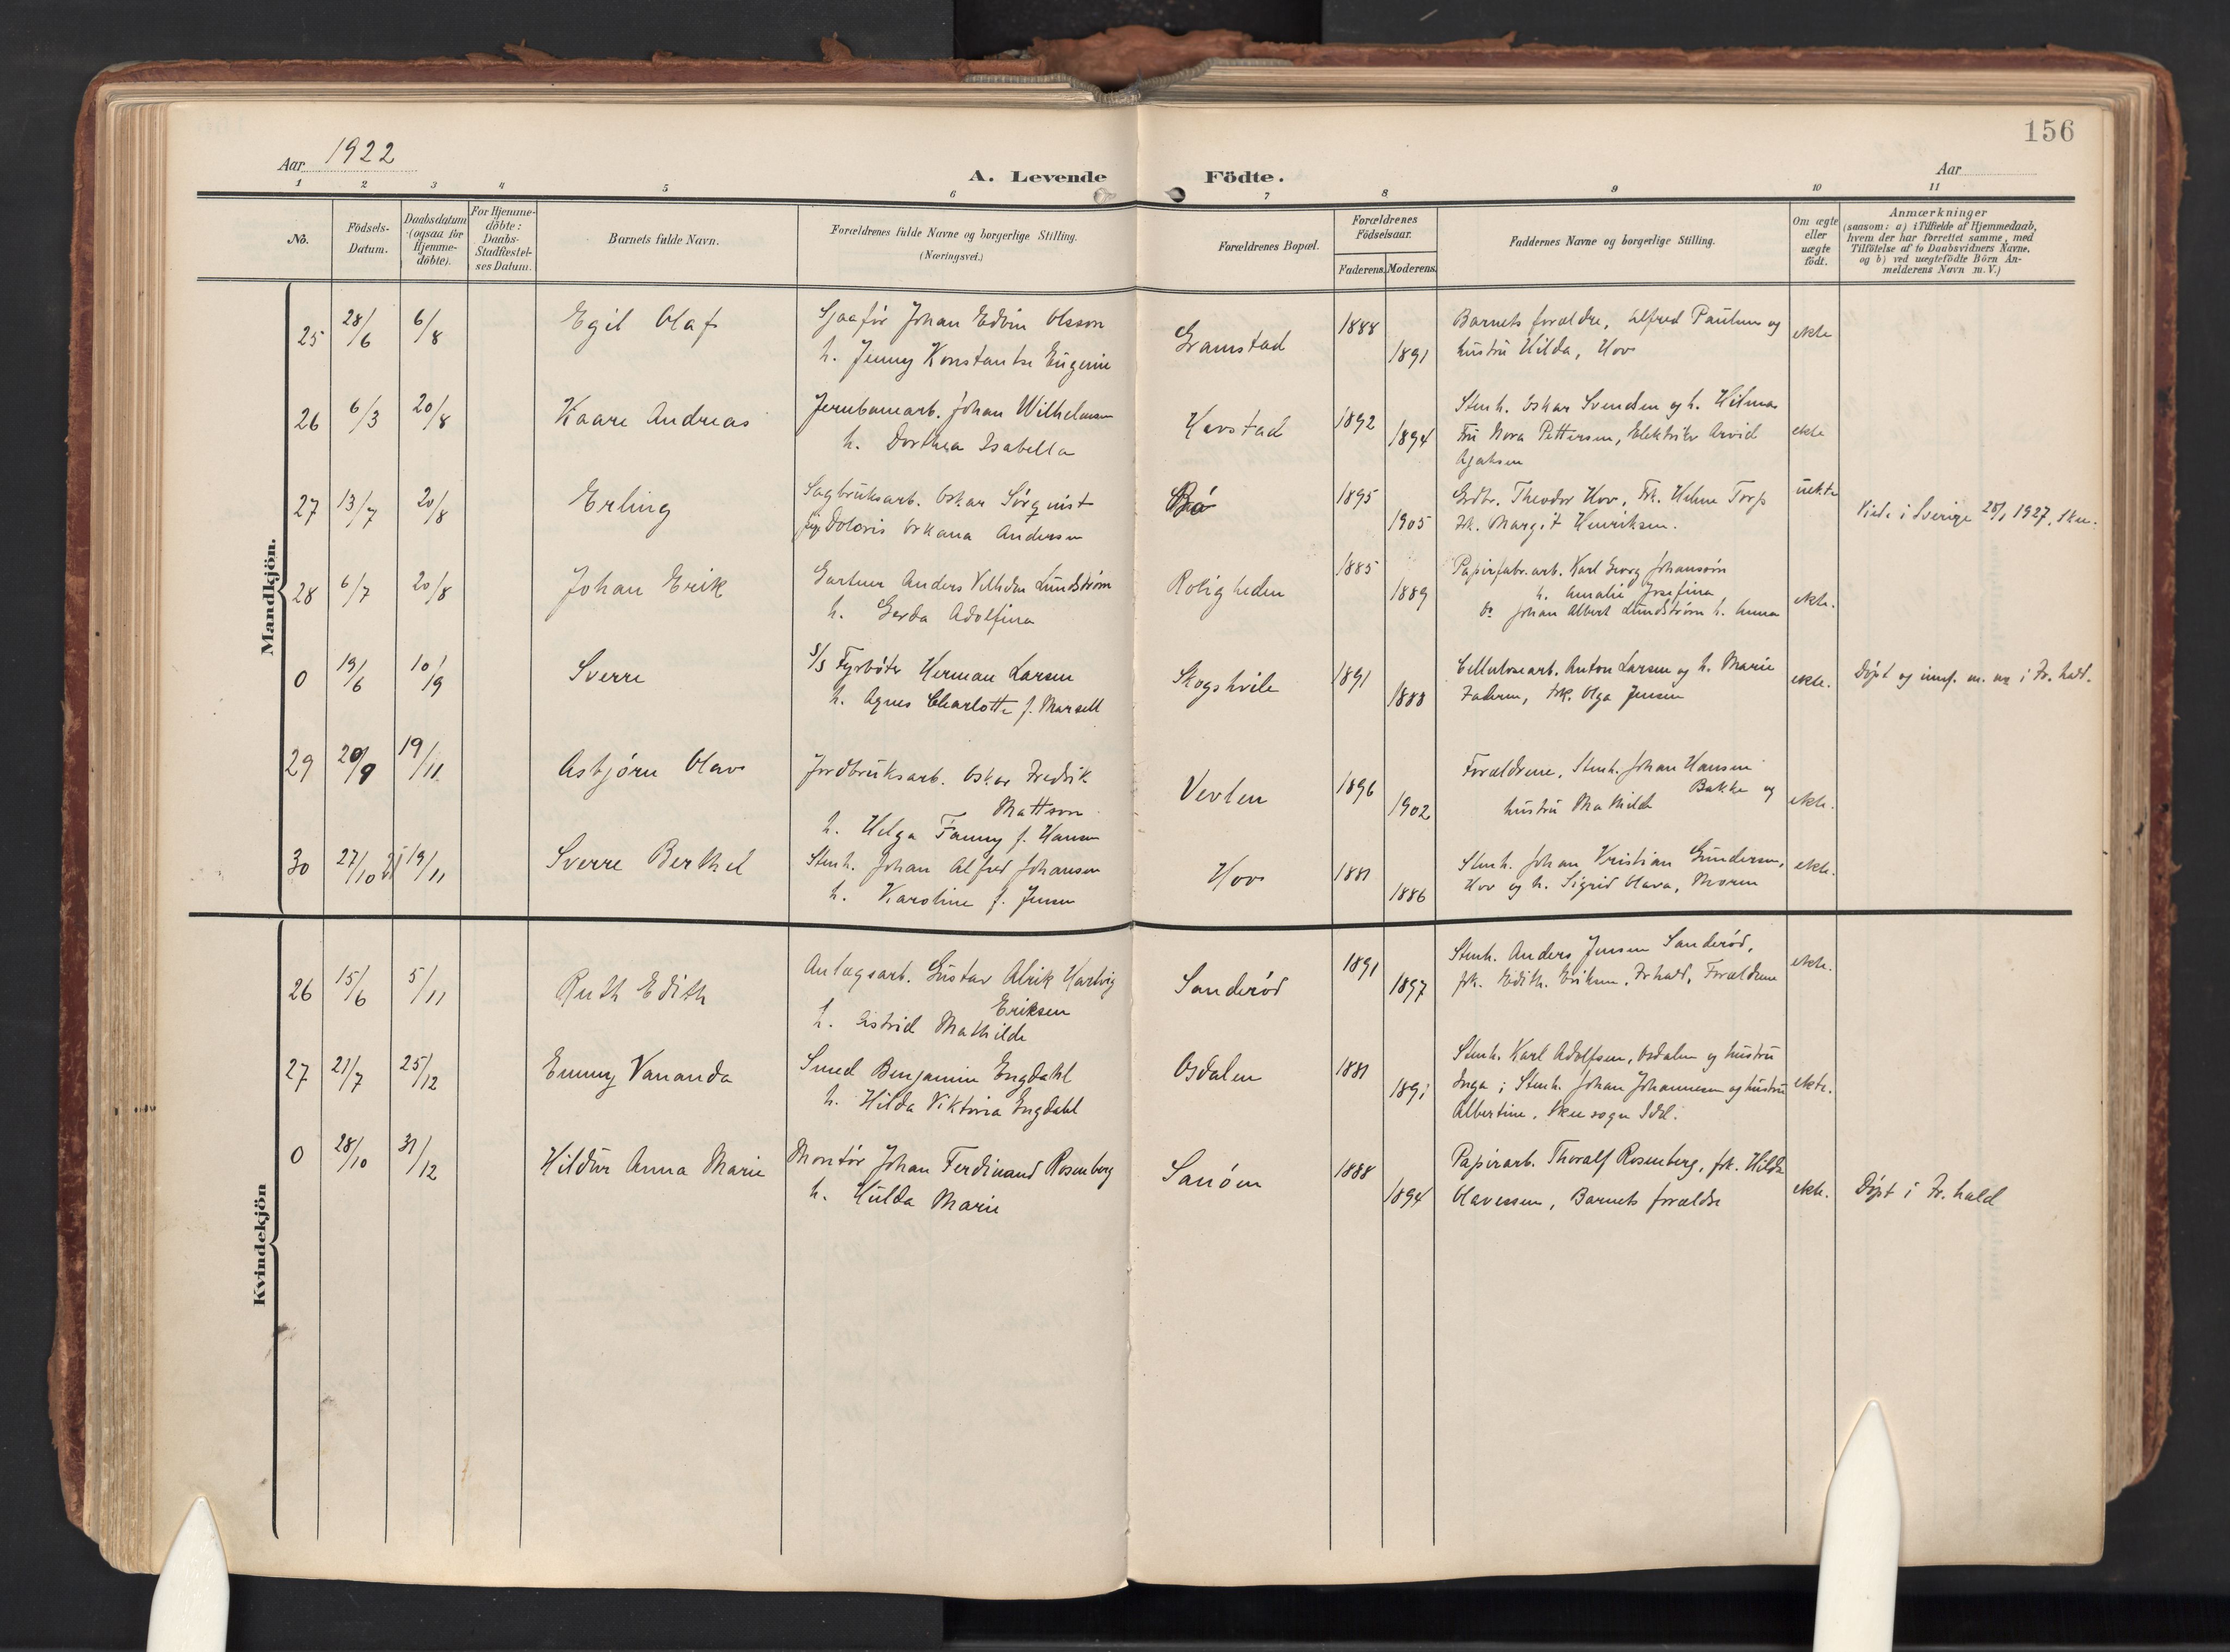 156
Aar 1922
A. Levende Födte.
Aar
1 2 3 4 5 6 7 8 9 10 11
No.
Födsels-
Datum.
Daabsdatum
(ogsaa for
Hjemme-
döbte).
For Hjemme-
döbte:
Daabs-
Stadfæstel-
ses Datum.
Barnets fulde Navn.
Forældrenes fulde Navne og borgerlige Stilling.
(Næringsvei.)
Forældrenes Bopæl.
Forældrenes
Födselsaar.
Faderens. Moderens.
Faddernes Navne og borgerlige Stilling.
Om ægte
eller
uægte
födt.
Anmærkninger
(saasom: a) i Tilfælde af Hjemmedaab,
hvem der har forrettet samme, med
Tilföielse af to Daabsvidners Navne.
og b) ved uægtefödte Börn An-
melderens Navn m. V.)
Mandkjön.
25 28/6 6/8 Egil Olaf Sjaafør Johan Edvin Olsson Gramstad 1888 Barnets forældre, Alfred Paulsen og ekte
h. Jenny Konstantse Eugenie 1891 hustru Hilda, Hov
26 6/3 20/8 Kaare Andreas Jernbanearb. Johan Wilhelmsen Havstad 1892 Stenh. Oskar Svendsen og h. Hilma
h. Dorthea Isabella 1894 Fru Nora Pettersen, Elektriker Arvid ekte
27 13/7 20/8 Erling Sagbruksarb. Oskar Sörqvist Bø 1895 Grdbr. Theodor Hov, Frk. Helene Torp uekte
pige Doloris Orkana Andersen 1905 Frk. Margit Henriksen. Viede i Sverige 1927, Skee.
28 6/7 20/8 Johan Erik Gartner Anders Vilhelm Lundström Roligheden 1885 Papirfabr.arb. Karl Georg Johansson
h. Gerda Adolfina 1889 h. Amalie Josefina
Do Johan Albert Lundström h. Anna ekte.
0 19/6 10/9 Sverre S/S Fyrbøter Herman Larsen Skogshvile 1891 Cellulosearb. Anton Larsen og h. Marie ekte. Døpt og innf. m. nr i Fr.hald.
h. Agnes Charlotte f. Marsell 1888 Faderen, Frk. Olga Jensen
29 20/9 19/11 Asbjørn Olav Jordbruksarb. Oskar Fredrik Vevlen 1896 Forældrene, Stenh. Johan Hansen
Mattson 1902 Bakke og
h. Helga Fanny f. Hansen hustru Mathilde ekte.
30 27/10 21 19/11 Sverre Berthel Stenh. Johan Alfred Johansen Hov 1881 Stenh. Johan Kristian Gundersen, ekte.
h. Karoline f. Jensen 1886 Hov og h. Sigrid Olava, Moren
Kvindekjön
26 15/6 5/11 Ruth Edith Anlægsarb. Gustav Alrik Hartvig Sanderød 1891 Stenh. Anders Jensen Sanderød, ekte.
Eriksen 1897 frk. Edith Eriksen, Fr.hald, Forældrene
h. Astrid Mathilde
27 21/7 25/12 Emmy Vananda Smed Benjamin Engdahl Osdalen 1881 Stenh. Karl Adolfsen, Osdalen og hustru
h. Hilda Viktoria Engdahl 1891 Inga; Stenh. Johan Johannesen og hustru ekte.
Albertine, Skee sogn
0 28/10 31/12 Hildur Anna Marie Montör Johan Ferdinand Rosenberg Sanöen 1888 Papirarb. Thoralf Rosenberg, frk. Hilda
h. Hulda Marie 1894 Olavessen, Barnets forældre ekte. Døpt i Fr.hald